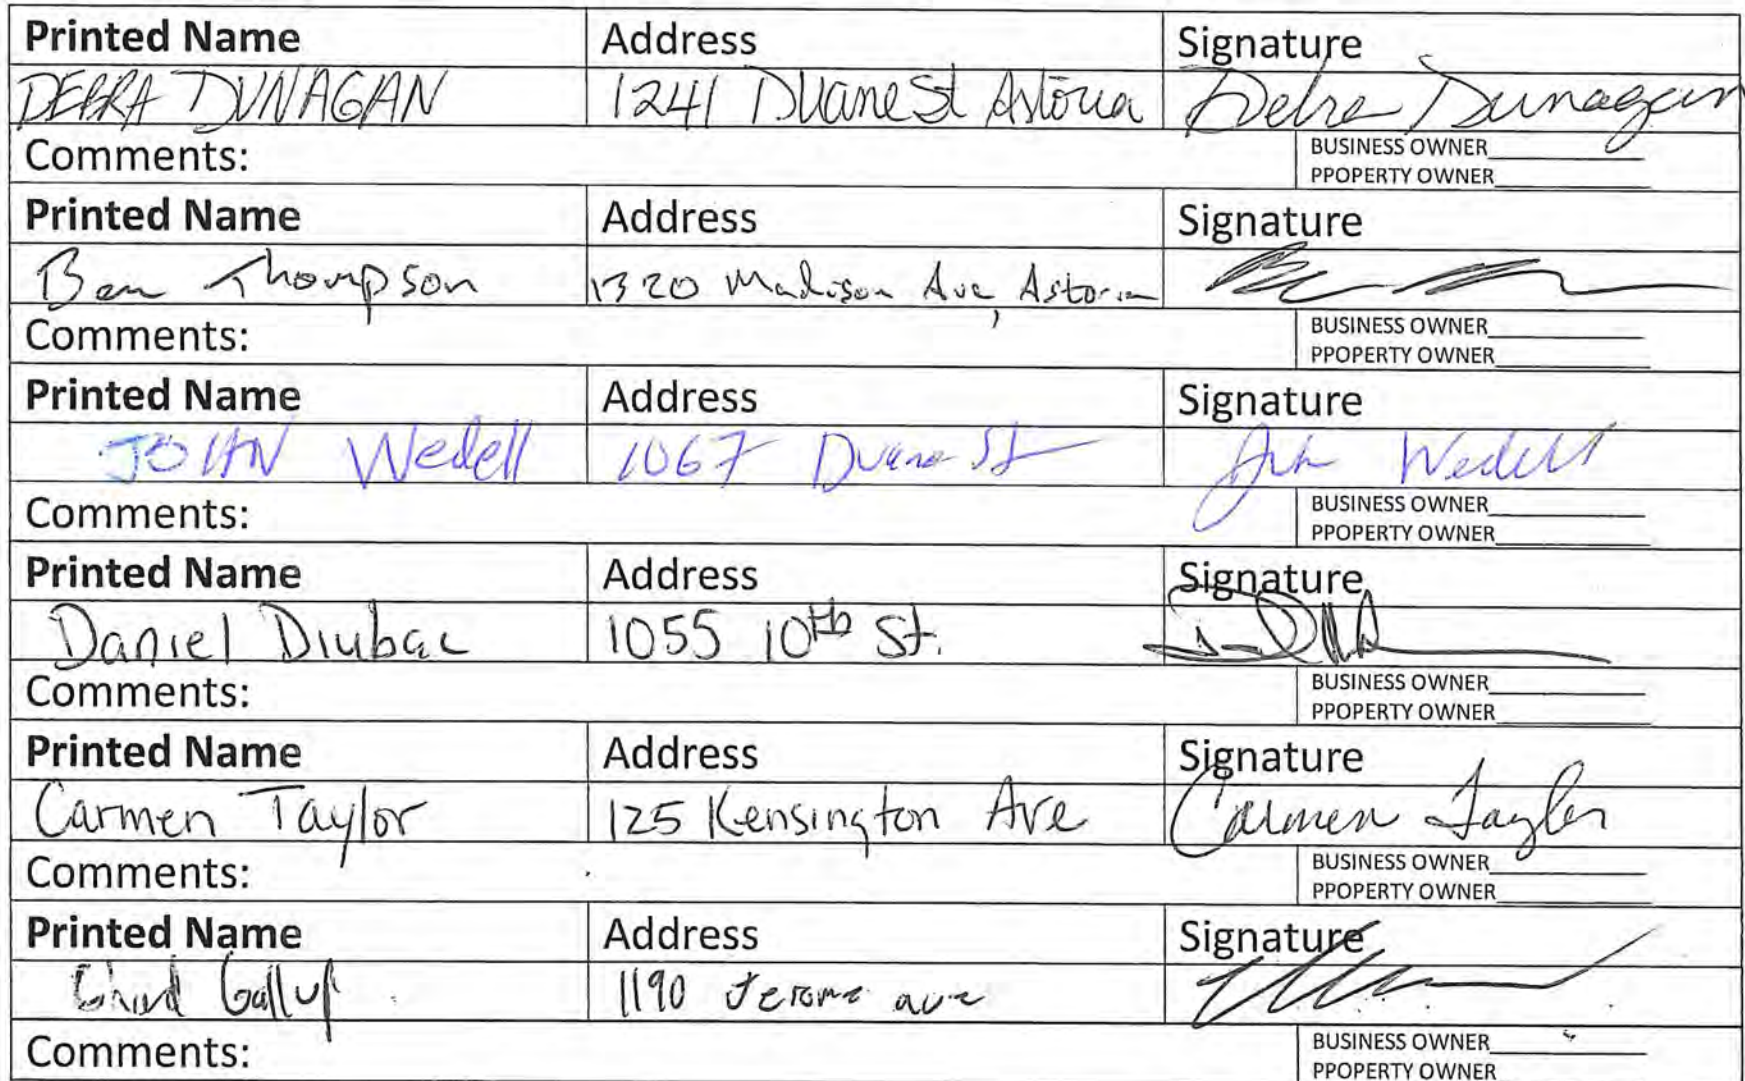 Printed Name Address Signature
DEBRA DUNAGAN 1241 Duane St Astoria Debra Dunagan
Comments: BUSINESS OWNER
PPOPERTY OWNER
Printed Name Address Signature
Ben Thompson 1320 Madison Ave, Astoria
Comments: BUSINESS OWNER
PPOPERTY OWNER
Printed Name Address Signature
JOHN Wedell 1067 Duane St John Wedell
Comments: BUSINESS OWNER
PPOPERTY OWNER
Printed Name Address Signature
Daniel 1055 10th St.
Comments: BUSINESS OWNER
PPOPERTY OWNER
Printed Name Address Signature
Carmen Taylor 125 Kensington Ave Carmen Taylor
Comments: BUSINESS OWNER
PPOPERTY OWNER
Printed Name Address Signature
Gallup 1190 Jerome ave
Comments: BUSINESS OWNER
PPOPERTY OWNER